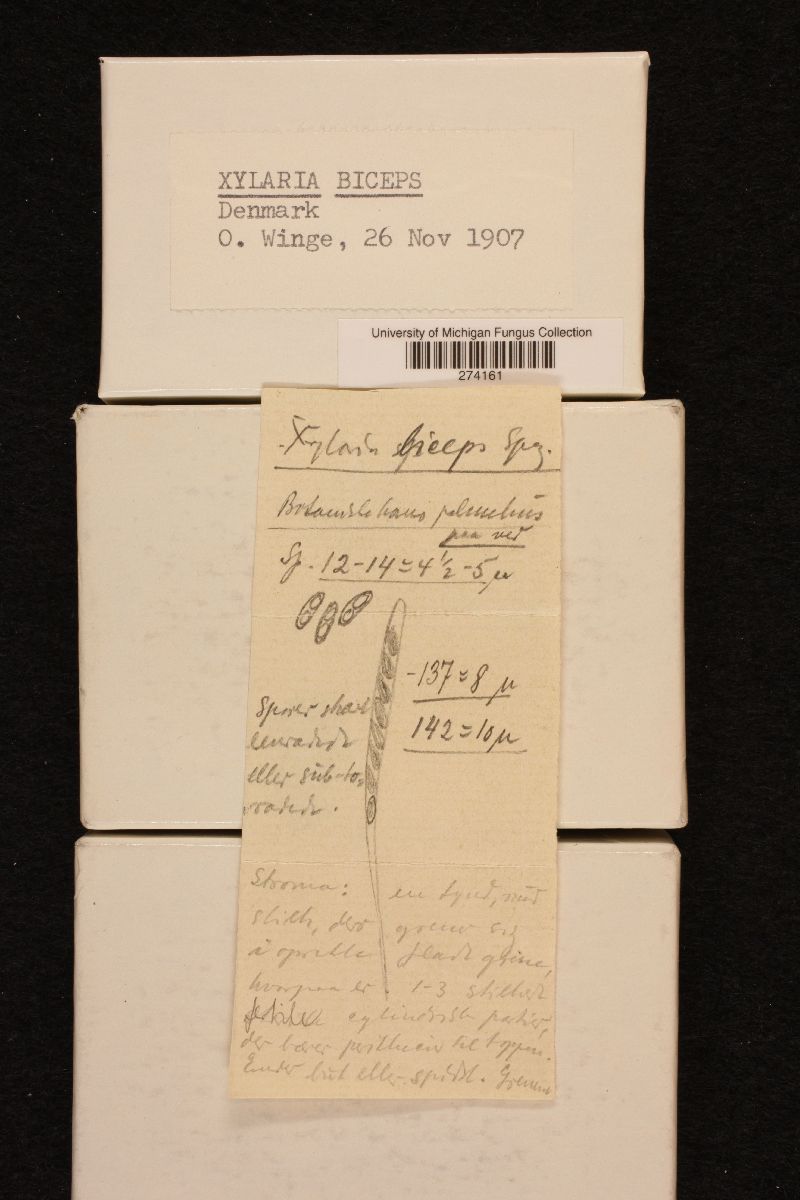 XYLARIA BICEPS
Denmark
O. Winge, 26 Nov 1907
University of Michigan Fungus Collection
274161
Xylaria biceps Speg.
Botanisk haves palmehus
paa ved
Sp. 12-14 = 4 1/2 - 5 µ
-137 = 8 µ
142 = 10 µ
Sporer skraat
enradede
eller sub-to-
radede.
Stroma: en tynd, rund
stilk, der grener sig
i oprette flade grene,
hvorpaa er 1-3 stilkede
fertile cylindriske partier,
der bærer perithecier til toppen.
Ender but eller spidst. Grenene